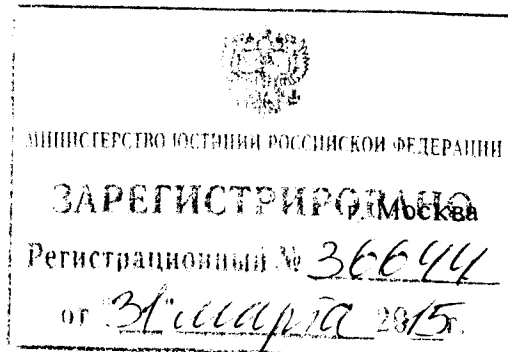 МИНИСТЕРСТВО ЮСТИЦИИ РОССИЙСКОЙ ФЕДЕРАЦИИ
ЗАРЕГИСТРИРОВАНО
г. Москва
Регистрационный № 36644
от "31" марта 2015г.